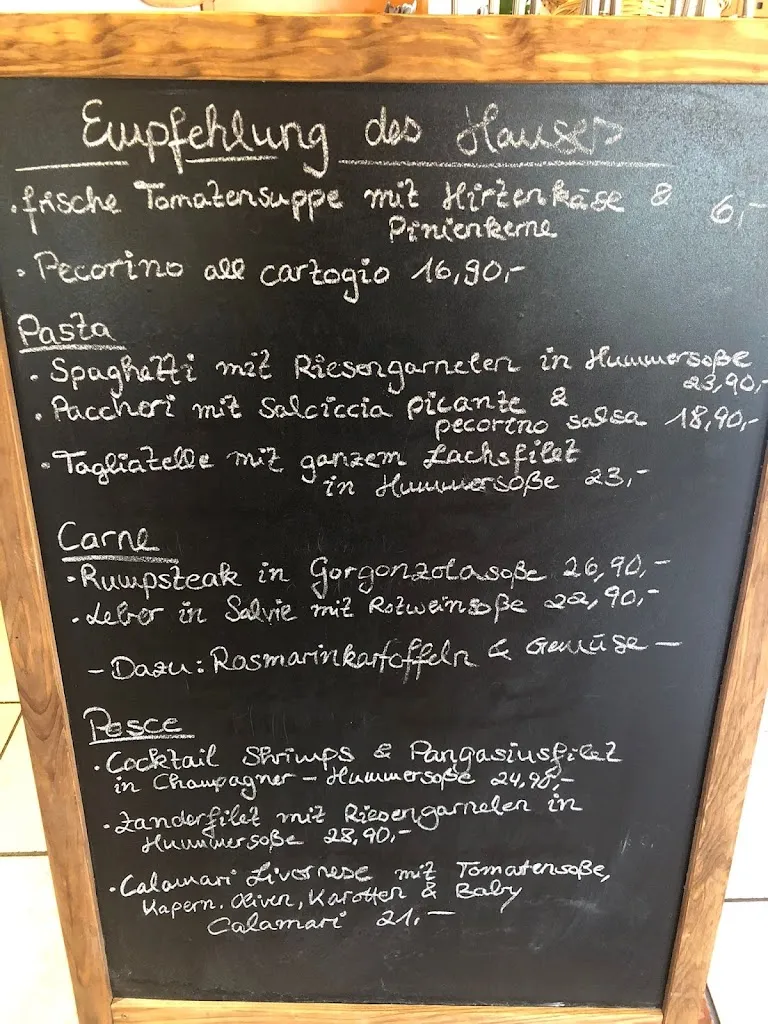 Empfehlung des Hauses
• frische Tomatensuppe mit Hirtenkäse & 6,-
Pinienkerne
• Pecorino all cartogio 16,90,-
Pasta
• Spaghetti mit Riesengarnelen in Hummersoße
23,90,-
• Paccheri mit Salciccia picante &
pecorino salsa 18,90,-
• Tagliatelle mit ganzem Lachsfilet
in Hummersoße 23,-
Carne
• Rumpsteak in Gorgonzolasoße 26,90,-
• Leber in Salvie mit Rotweinsoße 22,90,-
- Dazu: Rosmarinkartoffeln & Gemüse -
Pesce
• Cocktail Shrimps & Pangasiusfilet
in Champagner - Hummersoße 24,90,-
• Zanderfilet mit Riesengarnelen in
Hummersoße 28,90,-
• Calamari Livornese mit Tomatensoße,
Kapern, Oliven, Karotten & Baby
Calamari 21,-